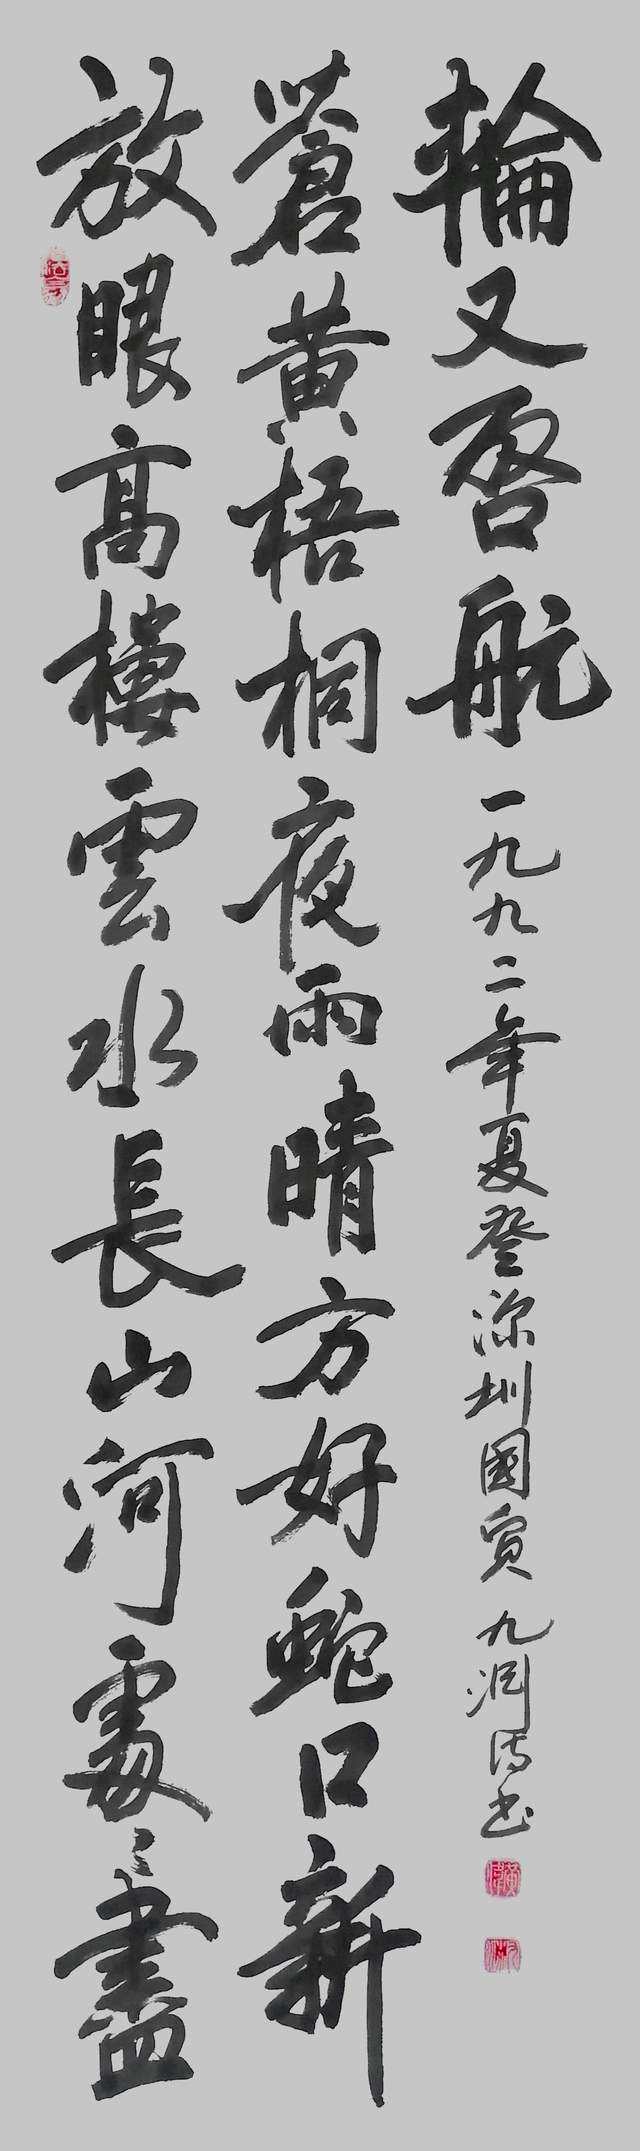 放眼高樓雲水長山河處々盡
蒼黃梧桐夜雨晴方好蛇口新
輪又啓航
一九九二年夏登深圳國貿 九